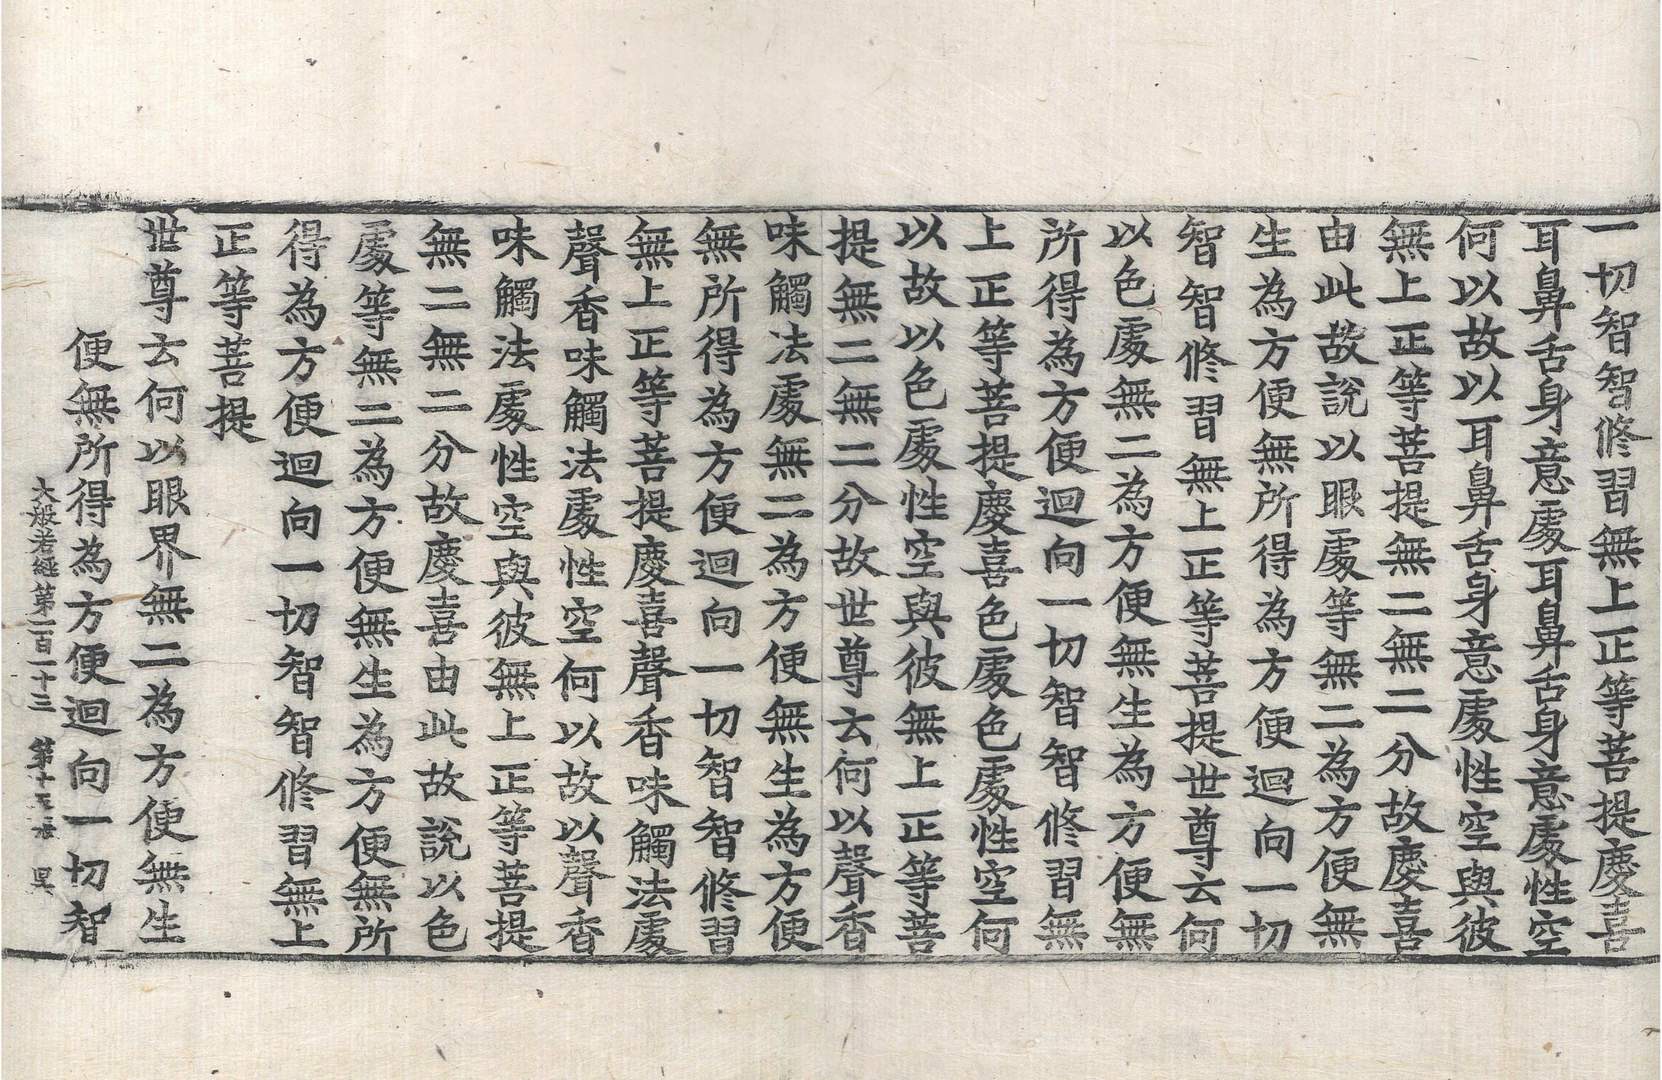 一切智智修習無上正等菩提慶喜
耳鼻舌身意處耳鼻舌身意處性空
何以故以耳鼻舌身意處性空與彼
無上正等菩提無二無二分故慶喜
由此故說以眼處等無二為方便無
生為方便無所得為方便迴向一切
智智修習無上正等菩提世尊云何
以色處無二為方便無生為方便無
所得為方便迴向一切智智修習無
上正等菩提慶喜色處色處性空何
以故以色處性空與彼無上正等菩
提無二無二分故世尊云何以聲香
味觸法處無二為方便無生為方便
無所得為方便迴向一切智智修習
無上正等菩提慶喜聲香味觸法處
聲香味觸法處性空何以故以聲香
味觸法處性空與彼無上正等菩提
無二無二分故慶喜由此故說以色
處等無二為方便無生為方便無所
得為方便迴向一切智智修習無上
正等菩提
世尊云何以眼界無二為方便無生
便無所得為方便迴向一切智
大般若經第一百一十三 第十五張